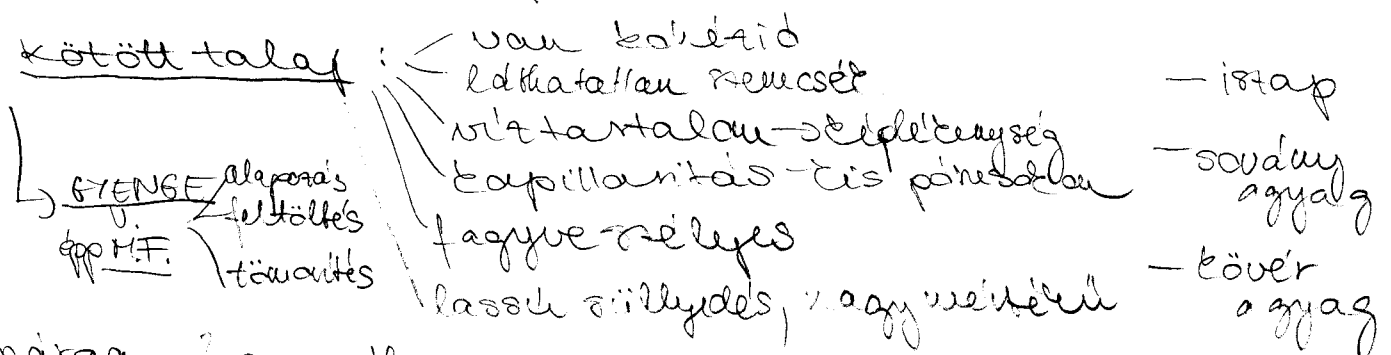 kötött talaj :
van kohézió
láthatatlan szemcsék
víztartalom → szélékenység
kapillaritás - kis pórusokban
fagyveszélyes
lassú süllyedés, nagy mértékű
— iszap
— sovány agyag
— kövér agyag
GYENGE
alapozás
feltöltés
tömörítés
épp M.F.